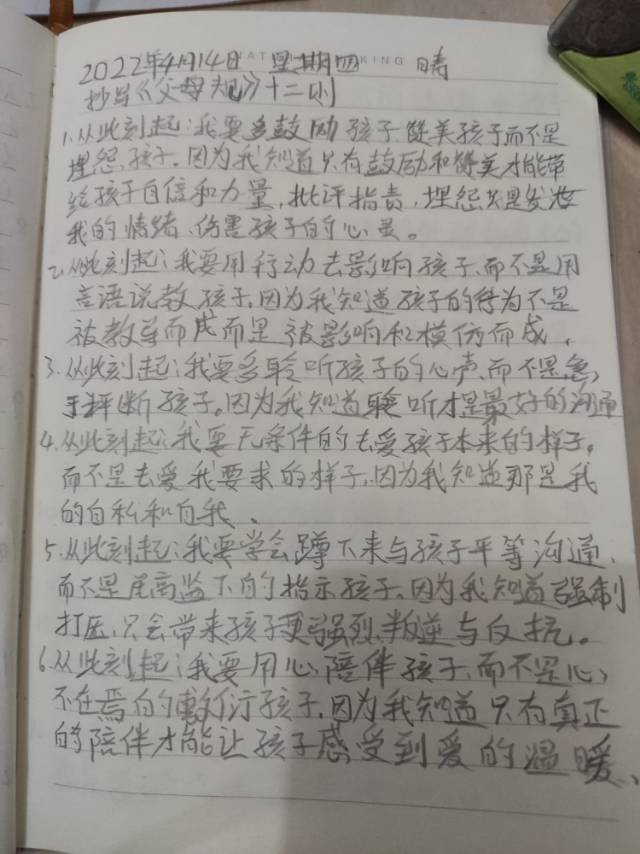 2022年4月14日 星期四 晴
抄写《父母规》十二则
1.从此刻起:我要多鼓励孩子、赞美孩子而不是
埋怨孩子。因为我知道只有鼓励和赞美才能带
给孩子自信和力量,批评指责,埋怨只是发泄
我的情绪、伤害孩子的心灵。
2.从此刻起:我要用行动去影响孩子,而不是用
言语说教孩子,因为我知道孩子的行为不是
被教导而成而是被影响和模仿而成,
3.从此刻起:我要多聆听孩子的心声,而不是急
于评断孩子。因为我知道聆听才是最好的沟通
4.从此刻起:我要无条件的去爱孩子本来的样子,
而不是去爱我要求的样子,因为我知道那是我
的自私和自我、
5.从此刻起:我要学会蹲下来与孩子平等沟通,
而不是居高监下的指示孩子,因为我知道强制
打压,只会带来孩子更强烈叛逆与反抗。
6.从此刻起:我要用心陪伴孩子,而不是心
不在焉的敷衍孩子,因为我知道只有真正
的陪伴才能让孩子感受到爱的温暖、